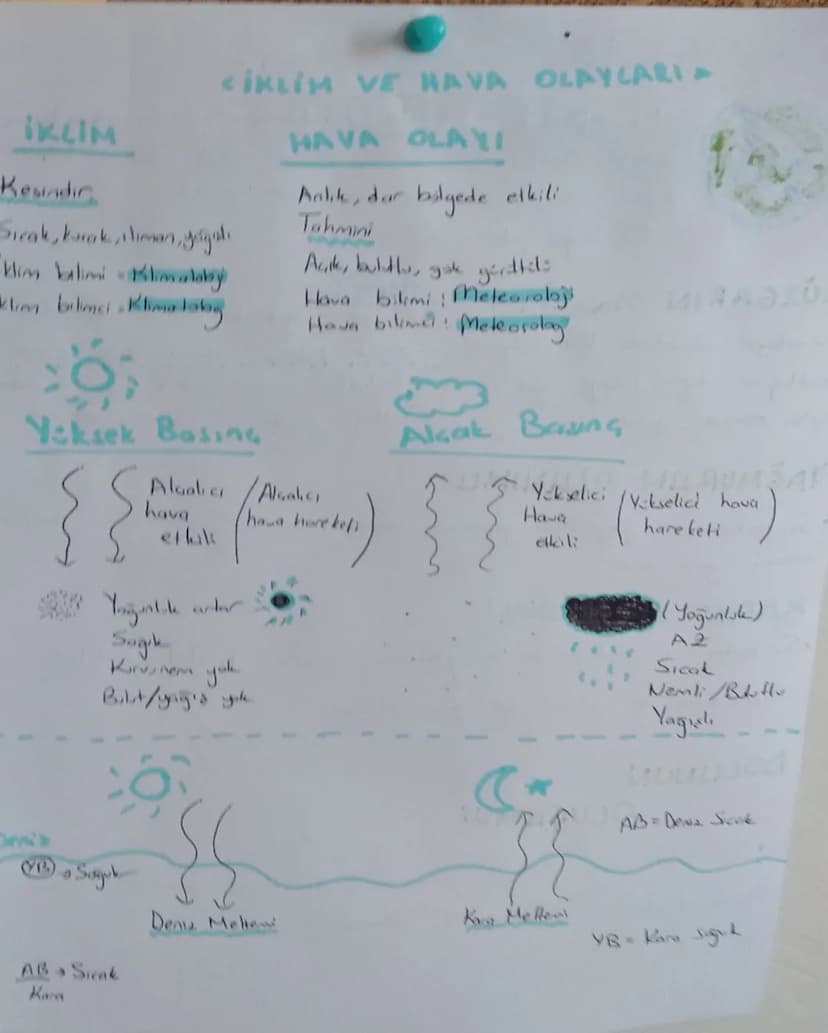 <İKLİM VE HAVA OLAYLARI>
İKLİM
Kesindir.
Sıcak, kurak, ılıman, yağışlı
klim bilimi = Klimatoloji
klim bilimci = Klimatolog
HAVA OLAYI
Anlık, dar bölgede etkili
Tahmini
Açık, bulutlu, gök gürültülü
Hava bilimi : Meteoroloji
Hava bilimci : Meteorolog
Yüksek Basınç
Alçalıcı
hava
etkili
(Alçalıcı
hava hareketi)
Yoğunluk artar
Soğuk
Kuru, nem yok
Bulut/yağış yok
Alçak Basınç
Yükselici
Hava
etkili
(Yükselici hava
hareketi)
(Yoğunluk)
AZ
Sıcak
Nemli/Bulutlu
Yağışlı
YB → Soğuk
Deniz Meltemi
AB → Sıcak
Kara
AB = Deniz Sıcak
Kara Meltemi
YB = Kara soğuk